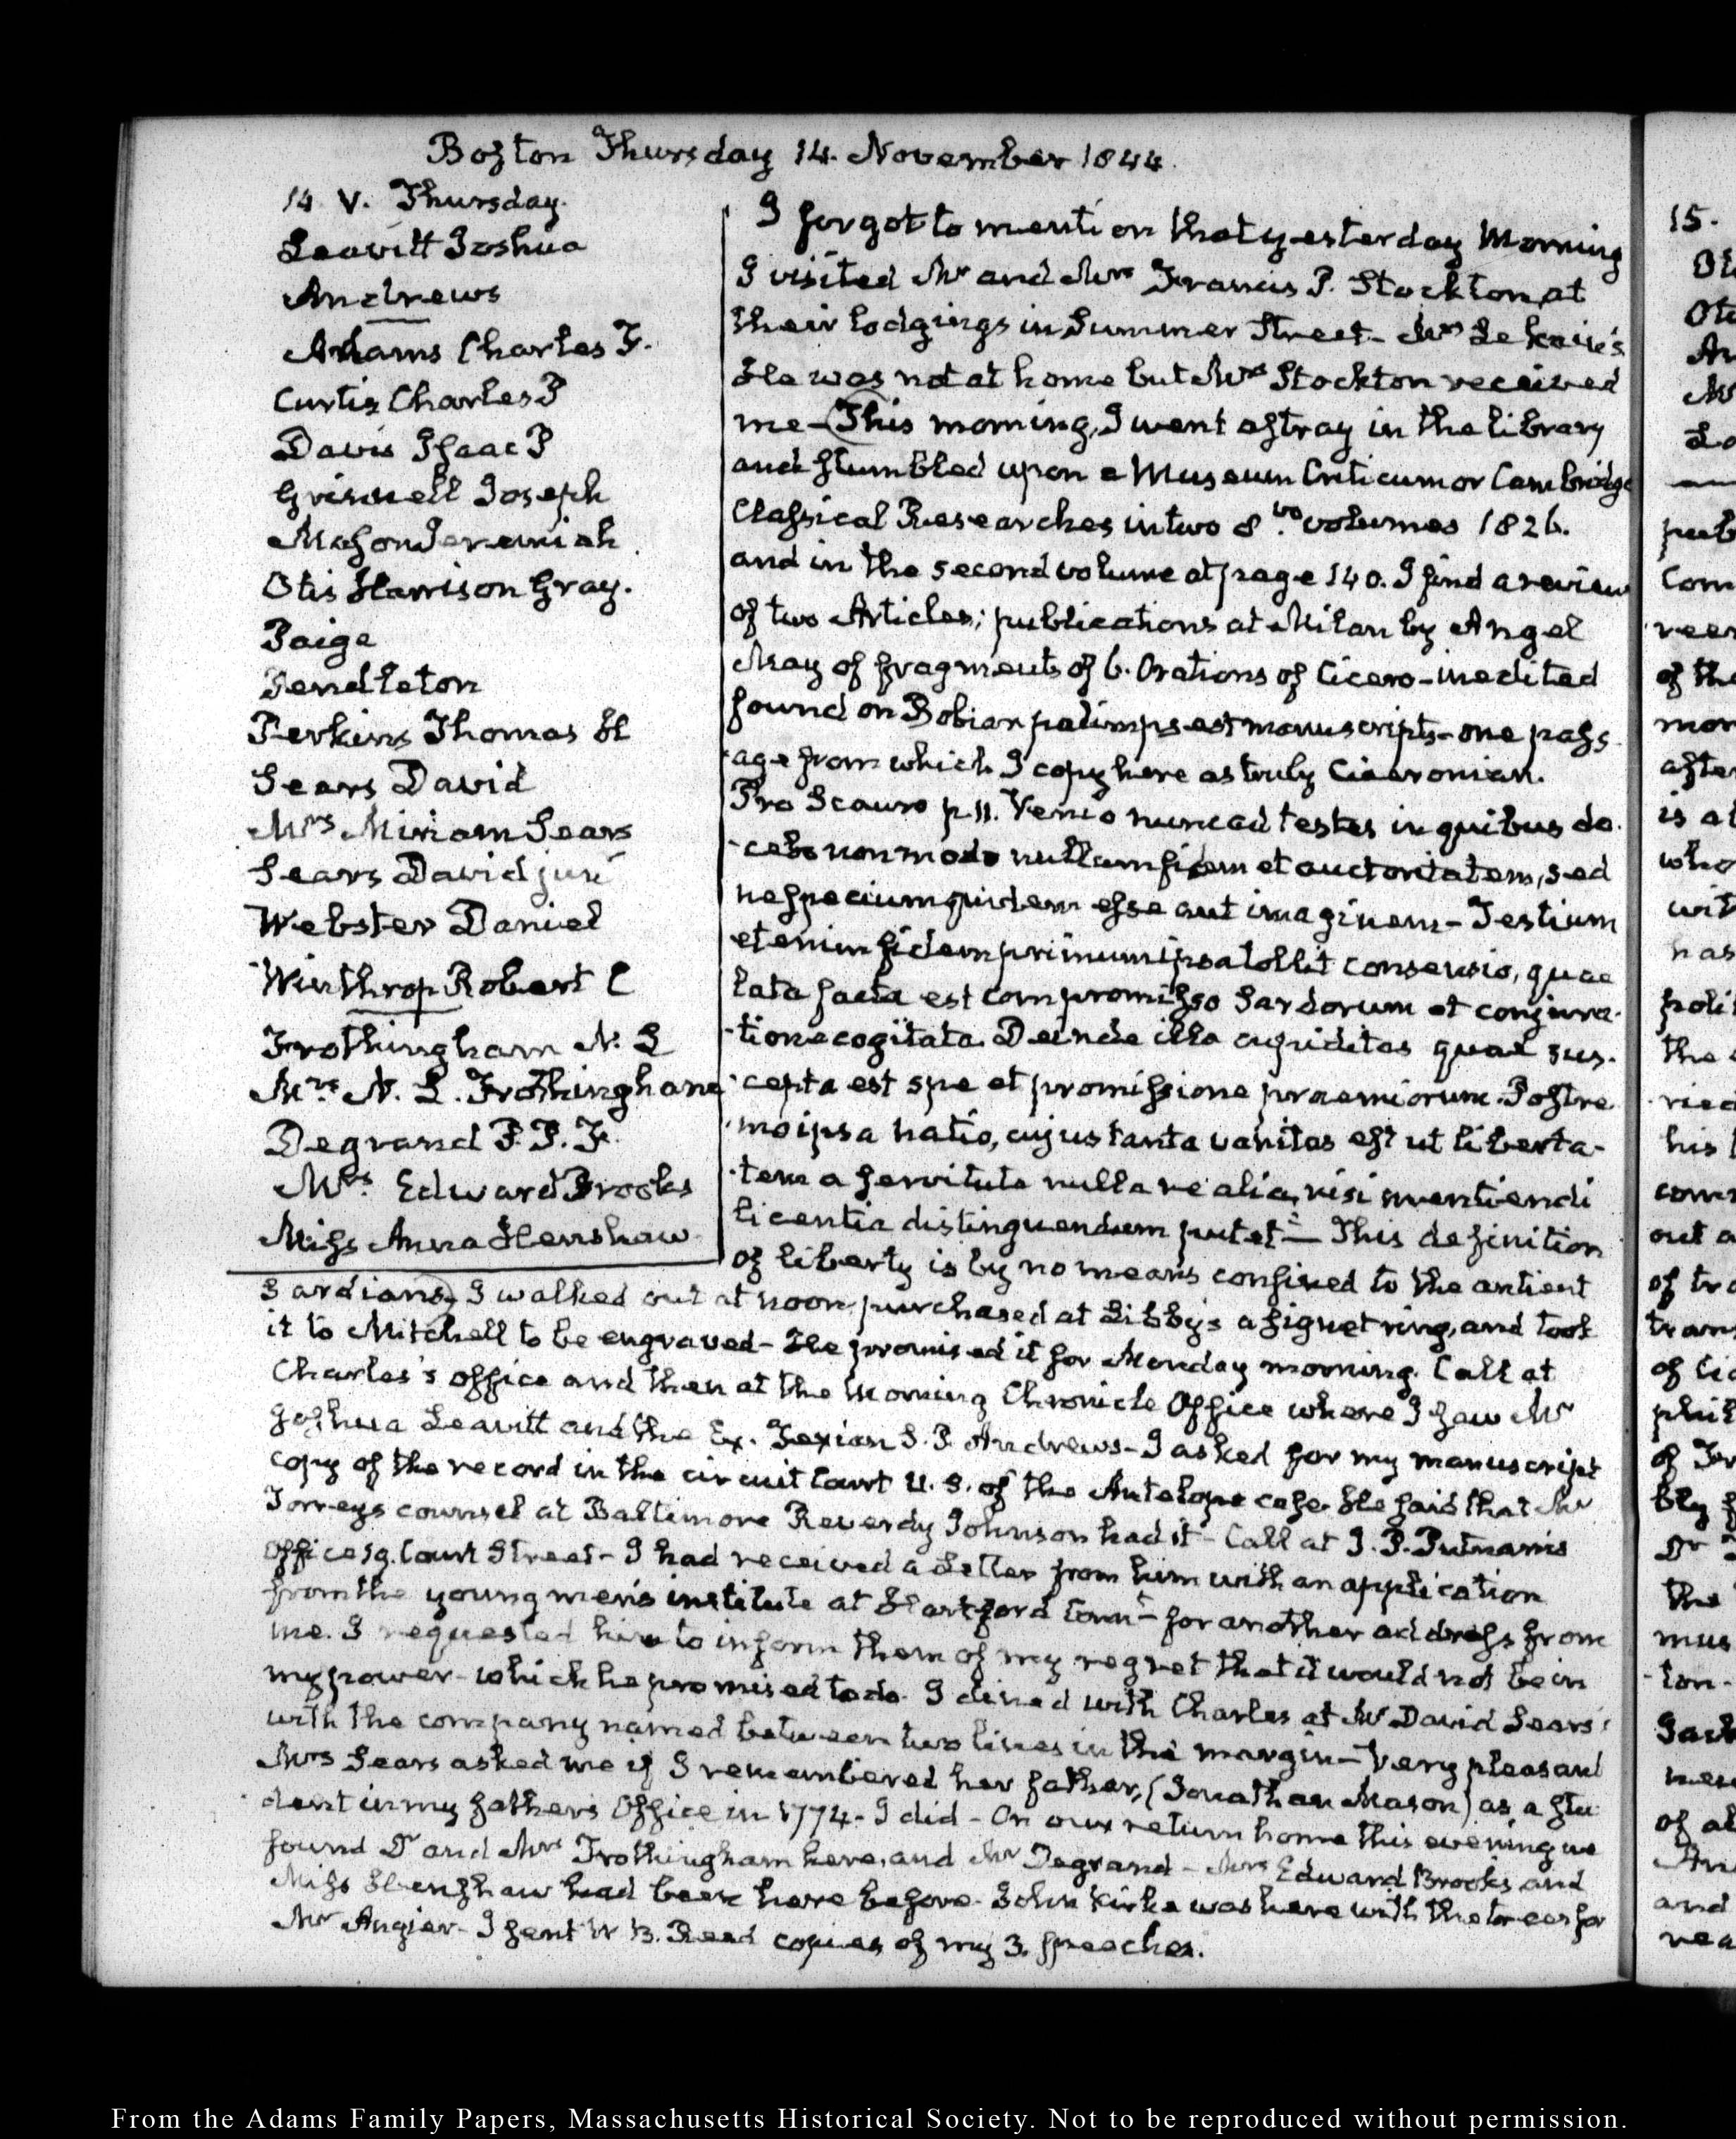 Boston Thursday 14. November 1844.
14 V. Thursday.
Leavitt Joshua
Andrews
Adams Charles F.
Curtis Charles P
Davis Isaac P
Grinnell Joseph
Mason Jeremiah
Otis Harrison Gray.
Paige
Pendleton
Perkins Thomas H
Sears David
Mrs Miriam Sears
Sears David junr
Webster Daniel
Winthrop Robert C
Frothingham N. L
Mrs. N. L. Frothingham
Degrand P. P. F.
Mrs. Edward Brooks
Miss Anna Henshaw
I forgot to mention that yesterday Morning
I visited Mr and Mrs Francis P. Stockton, at
their lodgings in Summer Street- Mrs
He was not at home but Mrs Stockton received
me- This morning, I went astray in the library
and stumbled upon a Museum Criticum or Cambridge
Classical Researches in two 8vo. volumes 1826.
and in the second volume at page 140. I find a review
of two Articles; publications at Milan by Angel
May of fragments of 6. Orations of Cicero- inedited
found on Bobian palimpsest manuscripts- one pass
-age from which I copy here as truly Ciceronian.
Pro Scauro p. 11. Venio nunc ad testes in quibus do-
-cebo non modo nullam fidem et auctoritatem, sed
ne speciem quidem esse aut imaginem- Testium
etenim fidem primum ipsa tollit consensio, quae
lata facta est compromisso Sardorum et conjura-
-tione cogitata. Deinde illa cupiditas quae sus-
-cepta est spe et promissione praemiorum. Postre
-mo ipsa natio, cujus tanta vanitas est ut liberta-
-tem a servitute nulla re alia, nisi mentiendi
licentia distinguendum putet- This definition
of liberty is by no means confined to the antient
Sardians, I walked out at noon, purchased at Libby's a signet ring, and took
it to Mitchell to be engraved- He promised it for Monday morning. Call at
Charles's office and then at the Morning Chronicle Office where I saw Mr
Joshua Leavitt and the Ex. Texian S. P. Andrews- I asked for my manuscript
copy of the record in the circuit Court U. S. of the Antelope case. He said that Mr
Torreys counsel at Baltimore Reverdy Johnson had it- Call at J. P. Putnam's
office Court Street- I had received a Letter from him with an application
from the young men's institute at Hartford Connt- for another address from
me. I requested him to inform them of my regret that it would not be in
my power- which he promised to do. I dined with Charles at Mr David Sears's
with the company named between two lines in the margin- Very pleasant
Mrs Sears asked me if I remembered her father, (Jonathan Mason) as a stu
dent in my father's Office in 1774- I did- On our return home this evening we
found Dr and Mrs Frothingham here, and Mr Degrand- Mrs Edward Brooks and
Miss Henshaw had been here before. John Kirke was here with the trees for
Mr Angier- I sent W B. Reed copies of my 3. speeches.
15.
From the Adams Family Papers, Massachusetts Historical Society. Not to be reproduced without permission.